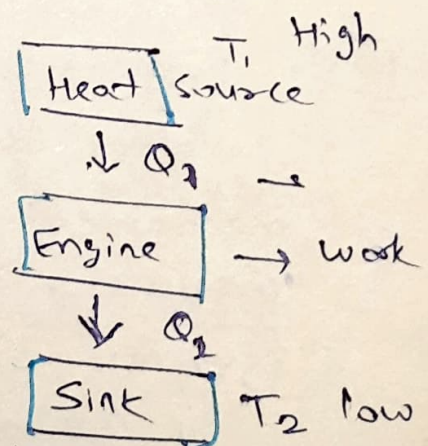 T₁ High
Heat Source
↓ Q₁
Engine → Work
↓ Q₂
Sink T₂ low